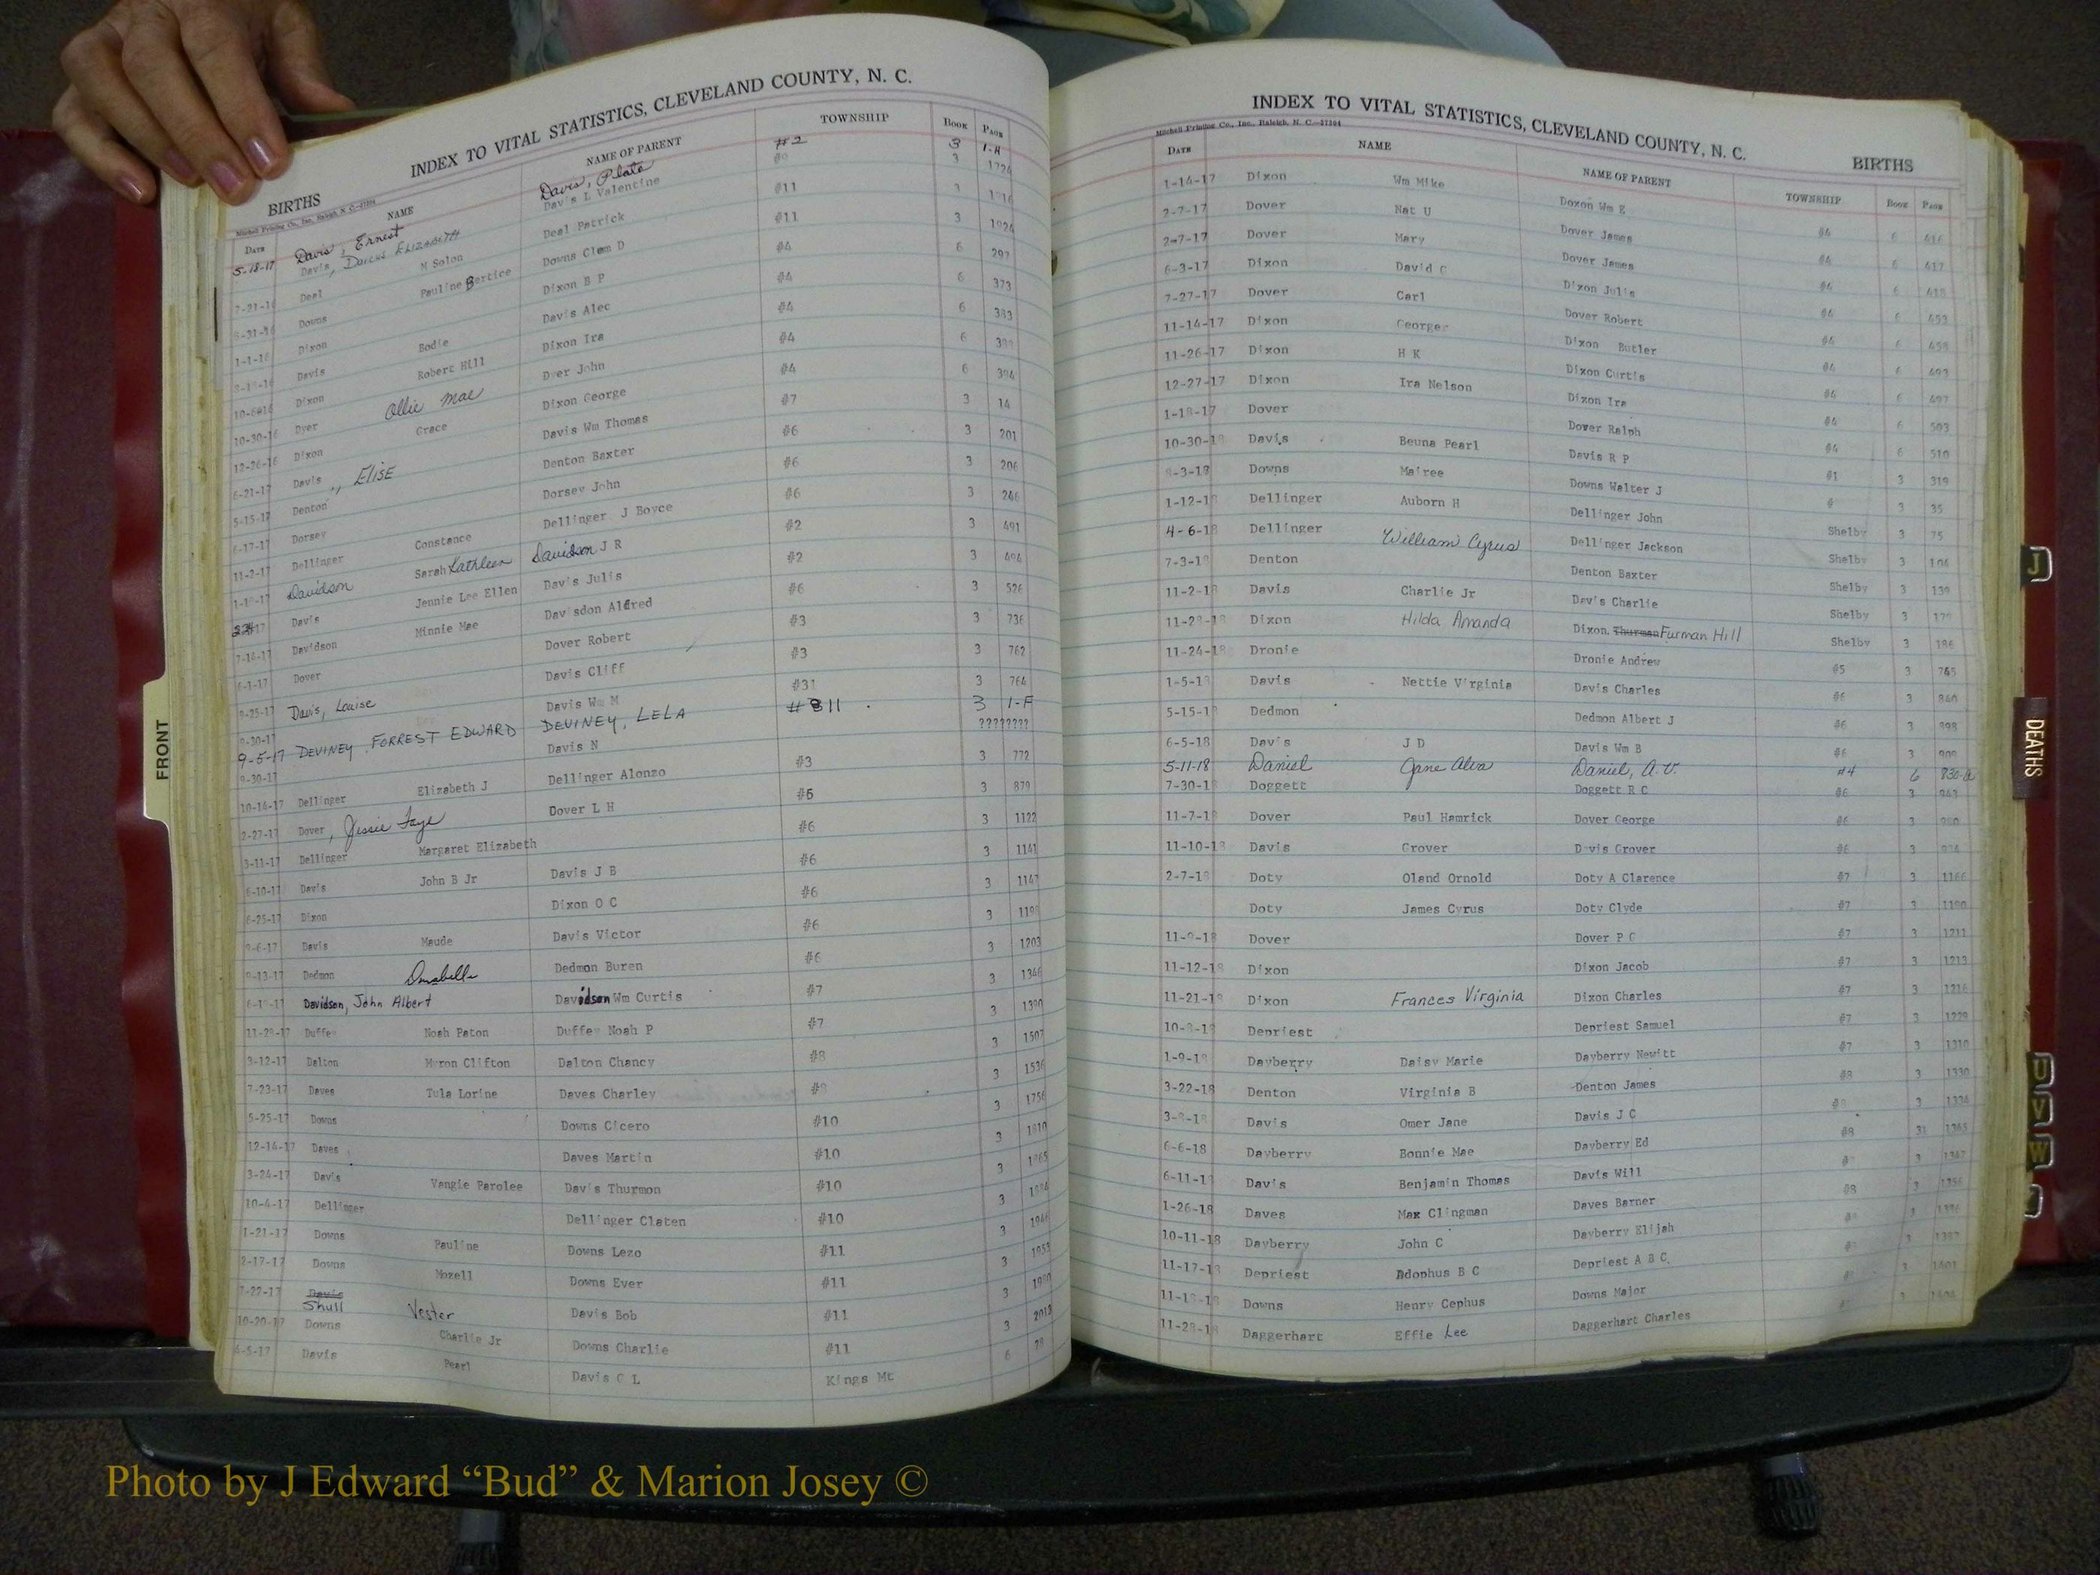 INDEX TO VITAL STATISTICS, CLEVELAND COUNTY, N. C.
BIRTHS
Mitchell Printing Co., Inc., Raleigh, N. C.
DATE NAME NAME OF PARENT TOWNSHIP BOOK PAGE
5-18-17 Davis, Ernest Davis, Plato #2 3 1-A
Davis, ELIZABETH Davis L Valentine 3
7-21-16 Deal M Solon Deal Patrick #11 3
Downs Pauline Bertice Downs Clem D #11 3 1924
1-1-16 Dixon Dixon B P #4 6 297
Davis Bodie Davis Alec #4 6 373
Dixon Robert Hill Dixon Ira #4 6 383
10-30-16 Dyer Ollie Mae Dyer John #4 6
12-26-16 Dixon Grace Dixon George #4 6 394
6-21-17 Davis, ELISE Davis Wm Thomas #7 3 14
5-15-17 Denton Denton Baxter #6 3 201
6-17-17 Dorsey Dorsey John #6 3 206
11-2-17 Dellinger Constance Dellinger J Boyce #6 3 246
Davidson Sarah Kathleen Davidson J R #2 3 491
Davis Jennie Lee Ellen Davis Julis #2 3 494
Davidson Minnie Mae Davisdon Aldred #6 3 526
6-1-17 Dover Dover Robert #3 3 736
9-25-17 Davis, Louise Davis Cliff #3 3 762
9-30-17 Davis Wm M #31 3 764
9-5-17 DEVINEY, FORREST EDWARD DEVINEY, LELA #811 3 1-F
9-30-17 Davis N ????????
10-14-17 Dellinger Elizabeth J Dellinger Alonzo #3 3 772
2-27-17 Dover, Jessie Faye Dover L H #6 3 879
3-11-17 Dellinger Margaret Elizabeth #6 3 1122
6-10-17 Davis John B Jr Davis J B #6 3 1141
6-25-17 Dixon Dixon O C #6 3 1147
9-6-17 Davis Maude Davis Victor #6 3
9-13-17 Dedmon Dedmon Buren #6 3 1203
Davidson, John Albert Davidson Wm Curtis #7 3 1346
11-28-17 Duffey Noah Paton Duffey Noah P #7 3 1390
3-12-17 Dalton Myron Clifton Dalton Chancy #8 3 1507
7-23-17 Daves Tula Lorine Daves Charley 3 1536
5-25-17 Downs Downs Cicero #10 3 1756
12-14-17 Daves Daves Martin #10 3
3-24-17 Davis Vangie Parolee Davis Thurmon #10 3
10-4-17 Dellinger Dellinger Claten #10 3
1-21-17 Downs Pauline Downs Lezo #11 3
2-17-17 Downs Mozell Downs Ever #11 3
7-22-17 Davis Shull Vester Davis Bob #11 3
10-20-17 Downs Charlie Jr Downs Charlie #11 3 2013
6-5-17 Davis Pearl Davis C L Kings Mt 6
INDEX TO VITAL STATISTICS, CLEVELAND COUNTY, N. C.
Mitchell Printing Co., Inc., Raleigh, N. C.—27204
BIRTHS
DATE NAME NAME OF PARENT TOWNSHIP BOOK PAGE
1-14-17 Dixon Wm Mike Doxon Wm E #4 6 416
2-7-17 Dover Nat U Dover James #4 6 417
2-7-17 Dover Mary Dover James #4 6 418
6-3-17 Dixon David C Dixon Julis #4 6 453
7-27-17 Dover Carl Dover Robert #4 6
11-14-17 Dixon George Dixon Butler #4 6 493
11-26-17 Dixon H K Dixon Curtis #4 6 497
12-27-17 Dixon Ira Nelson Dixon Ira #4 6 503
1-18-17 Dover Dover Ralph #4 6 510
10-30-18 Davis Beuna Pearl Davis R P #1 3 319
8-3-18 Downs Mairee Downs Walter J # 3 35
1-12-18 Dellinger Auborn H Dellinger John Shelby 3 75
4-6-18 Dellinger William Cyrus Dellinger Jackson Shelby 3
7-3-18 Denton Denton Baxter Shelby 3 139
11-2-18 Davis Charlie Jr Davis Charlie Shelby 3
11-28-18 Dixon Hilda Amanda Dixon Thurman Furman Hill Shelby 3 186
11-24-18 Dronie Dronie Andrew #5 3 745
1-5-18 Davis Nettie Virginia Davis Charles #6 3 860
5-15-18 Dedmon Dedmon Albert J #6 3 898
6-5-18 Davis J D Davis Wm B #6 3
5-11-18 Daniel Jane Alva Daniel, A. V. #4 6 830-A
7-30-18 Doggett Doggett R C #6 3
11-7-18 Dover Paul Hamrick Dover George #6 3
11-10-18 Davis Grover Davis Grover #6 3
2-7-18 Doty Oland Ornold Doty A Clarence #7 3 1166
Doty James Cyrus Doty Clyde #7 3 1190
11-9-18 Dover Dover P G #7 3 1211
11-12-18 Dixon Dixon Jacob #7 3 1213
11-21-18 Dixon Frances Virginia Dixon Charles #7 3 1216
10-8-18 Depriest Depriest Samuel #7 3 1229
1-9-18 Dayberry Daisy Marie Dayberry Newitt #7 3 1310
3-22-18 Denton Virginia B Denton James #8 3 1330
Davis Omer Jane Davis J C #8 3 1334
6-6-18 Dayberry Bonnie Mae Dayberry Ed #8 31 1345
6-11-18 Davis Benjamin Thomas Davis Will 3 1347
1-26-18 Daves Max Clingman Daves Barner #8 3
10-11-18 Dayberry John C Dayberry Elijah
11-17-18 Depriest Adophus B C Depriest A B C
11-18-18 Downs Henry Cephus Downs Major
11-28-18 Daggerhart Effie Lee Daggerhart Charles
FRONT
J
DEATHS
U
V
W
Photo by J Edward “Bud” & Marion Josey ©